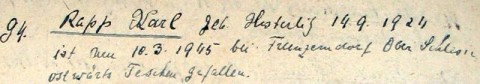 94. Rapp Karl geb. Hosterlitz 14.9.1924
ist den 10.3.1945 bei Ober Schlesien
ostwärts Teschen gefallen.